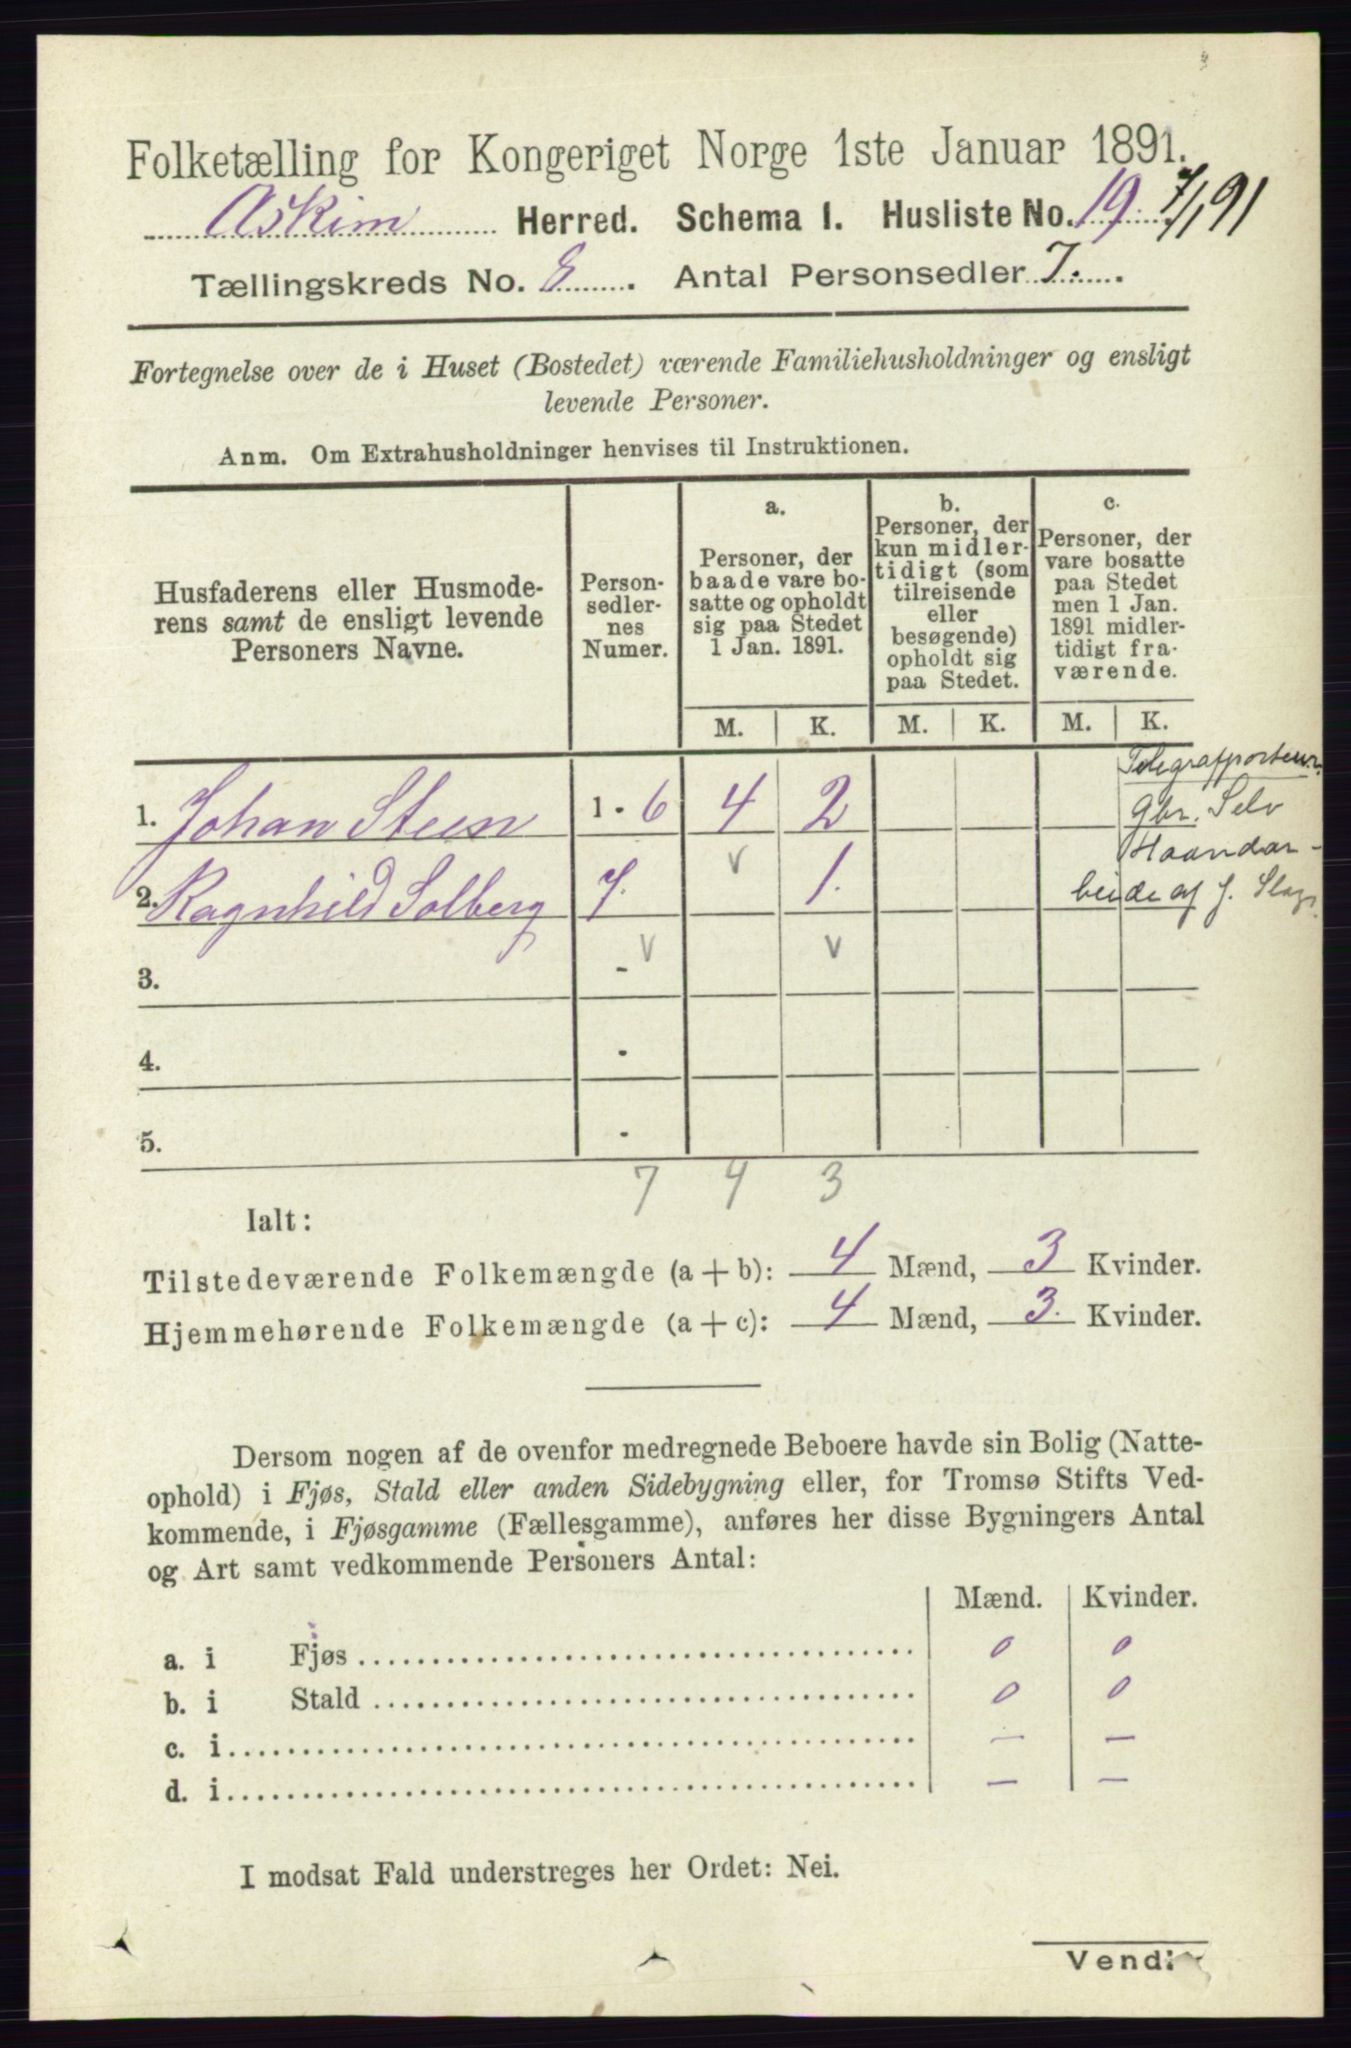 Folketælling for Kongeriget Norge 1ste Januar 1891.
Askim Herred. Schema I. Husliste No. 19 7/1 91
Tællingskreds No. 8. Antal Personsedler 7.
Fortegnelse over de i Huset (Bostedet) værende Familiehusholdninger og ensligt
levende Personer.
Anm. Om Extrahusholdninger henvises til Instruktionen.
Husfaderens eller Husmode-
rens samt de ensligt levende
Personers Navne.
Person-
sedler-
nes
Numer.
a.
Personer, der
baade vare bo-
satte og opholdt
sig paa Stedet
1 Jan. 1891.
b.
Personer, der
kun midler-
tidigt (som
tilreisende
eller
besøgende)
opholdt sig
paa Stedet.
c.
Personer, der
vare bosatte
paa Stedet
men 1 Jan.
1891 midler-
tidigt fra-
værende.
M. K. M. K. M. K.
Telegrafporteur.
1. Johan Steen 1 - 6 4 2 Gbr. Selv
Haandar-
2. Ragnhild Solberg 7. v 1. beide af J. Slags.
3. - v v
4. -
5. -
7 4 3
Ialt:
Tilstedeværende Folkemængde (a + b): 4 Mænd, 3 Kvinder.
Hjemmehørende Folkemængde (a + c): 4 Mænd, 3. Kvinder.
Dersom nogen af de ovenfor medregnede Beboere havde sin Bolig (Natte-
ophold) i Fjøs, Stald eller anden Sidebygning eller, for Tromsø Stifts Ved-
kommende, i Fjøsgamme (Fællesgamme), anføres her disse Bygningers Antal
og Art samt vedkommende Personers Antal:
Mænd. Kvinder.
a. i Fjøs 0 0
b. i Stald 0 0
c. i — —
d. i — —
I modsat Fald understreges her Ordet: Nei.
Vendi